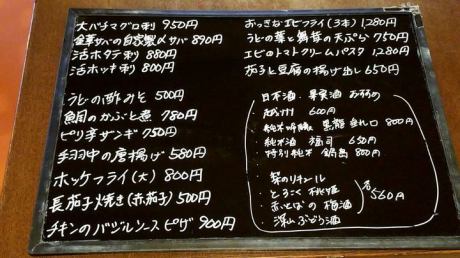 大バチマグロ刺 950円
金華サバの自家製〆サバ 890円
活ホタテ刺 880円
活ホッキ刺 800円
うどの酢みそ 500円
魚周のかぶと煮 780円
ピリ辛ザンギ 750円
手羽中の唐揚げ 580円
ホッケフライ(大) 800円
長茄子焼き(赤茄子) 500円
チキンのバジルソースピザ 900円
おっきなエビフライ(3本) 1280円
うどの葉と舞茸の天ぷら 750円
エビのトマトクリームパスタ 1280円
茄子と豆腐の揚げ出し 650円
日本酒 果実酒 おすすめ
600円
・純米吟醸 黒龍 垂れ口 800円
・純米酒 福司 650円
・特別純米 鍋島 800円
・杏のリキュール
・とろとろ桃姫
・あらごしの梅酒
・深山ぶどう酒
各560円